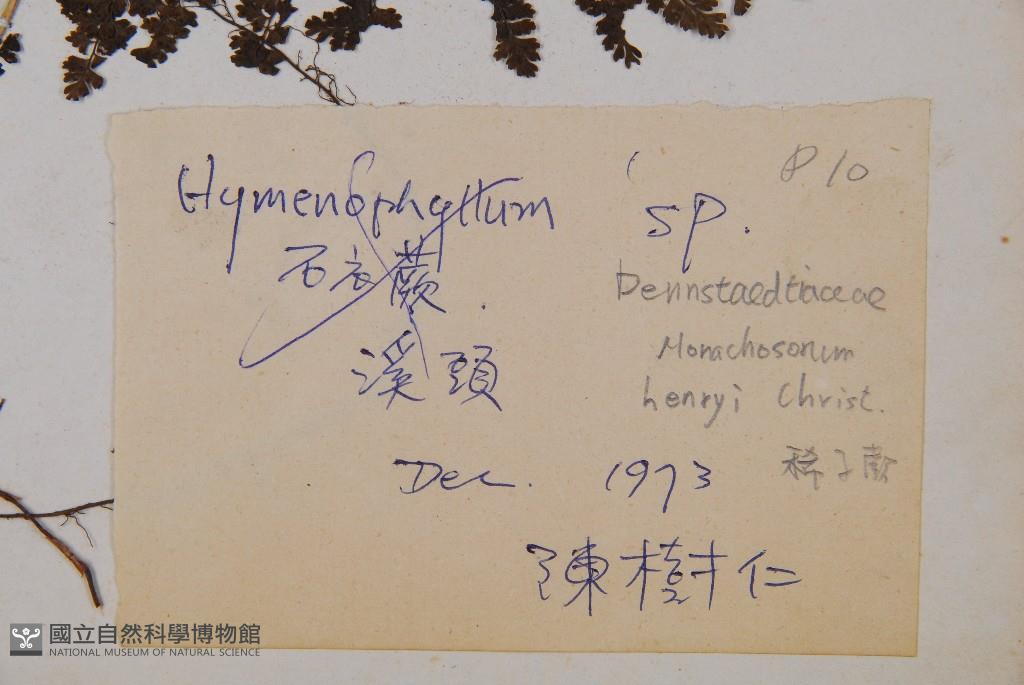 P10
Hymenophyllum sp.
石衣蕨.
Dennstaedtiaceae
溪頭
Monachosorum
henryi Christ.
稀子蕨
Dec. 1973
陳樹仁
國立自然科學博物館
NATIONAL MUSEUM OF NATURAL SCIENCE